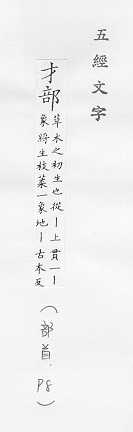 五經文字
才部
草木之初生也從丨上貫一丨
象將生枝葉一象地丨古本反
(部首, P8)